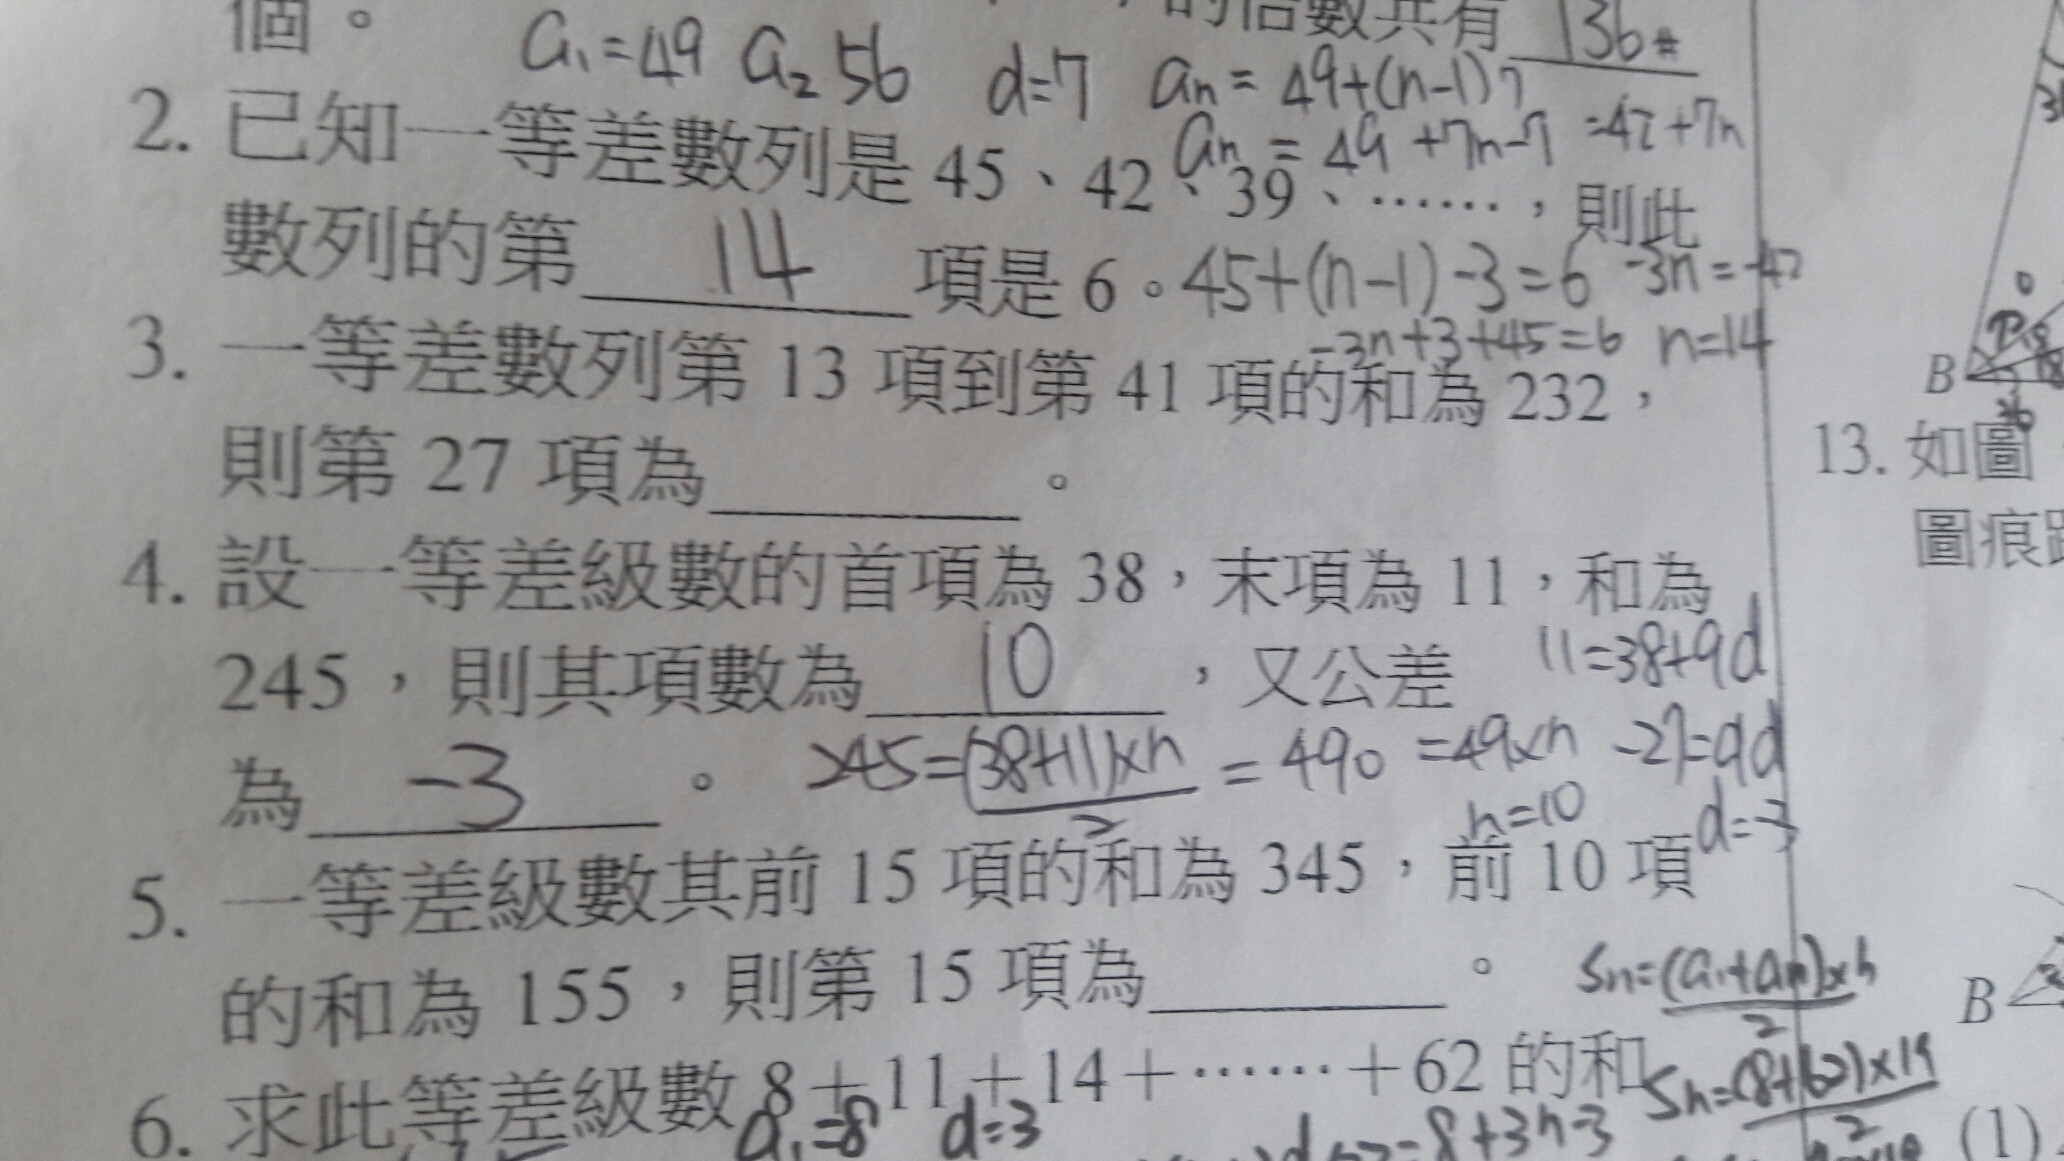 個。
的倍數共有 136#
a₁=49 a₂ 56 d=7 an = 49+(n-1)7
an = 49 +7n-7 =42+7n
2. 已知一等差數列是 45、42、39、……,則此
數列的第 14 項是 6。 45+(n-1)-3=6 -3n=-42
-3n+3+45=6 n=14
3. 一等差數列第 13 項到第 41 項的和為 232,
則第 27 項為 。
4. 設一等差級數的首項為 38,末項為 11,和為
245,則其項數為 10 ,又公差 11=38+9d
為 -3 。 245=(38+11)×n/2 = 490 =49×n -27=9d
n=10 d=-3
5. 一等差級數其前 15 項的和為 345,前 10 項
的和為 155,則第 15 項為 。 Sn=(a₁+an)×n/2
6. 求此等差級數 8+11+14+……+62 的和 Sn=(8+62)×19/2
a₁=8 d=3 =8+3n-3
B
13. 如圖
圖痕
B
(1)